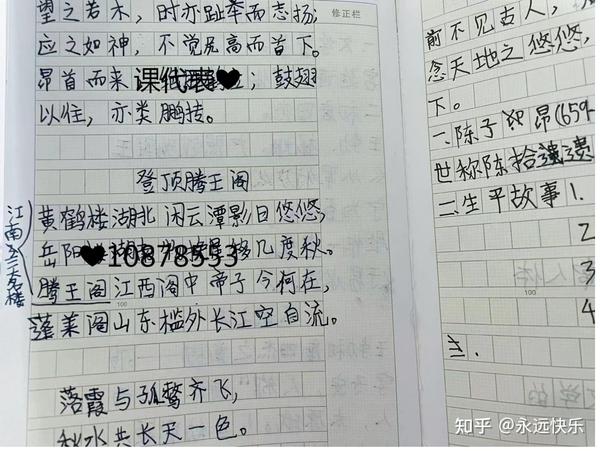 望之若木，时亦趾举而志扬；
修正栏
应之如神，不觉尻高而首下。
昂首而来
课代表♥
；鼓翅
以往，亦类鹏抟。
登顶腾王阁
江南三大名楼
黄鹤楼湖北 闲云潭影日悠悠，
岳阳
♥10878553
几度秋。
腾王阁江西阁中帝子今何在，
蓬莱阁山东槛外长江空自流。
落霞与孤鹜齐飞，
秋水共长天一色。
前不见古人，
念天地之悠悠，
下。
一、陈子昂(659
世称陈拾遗
二、生平故事1.
2
3
4
100
100
知乎 @永远快乐